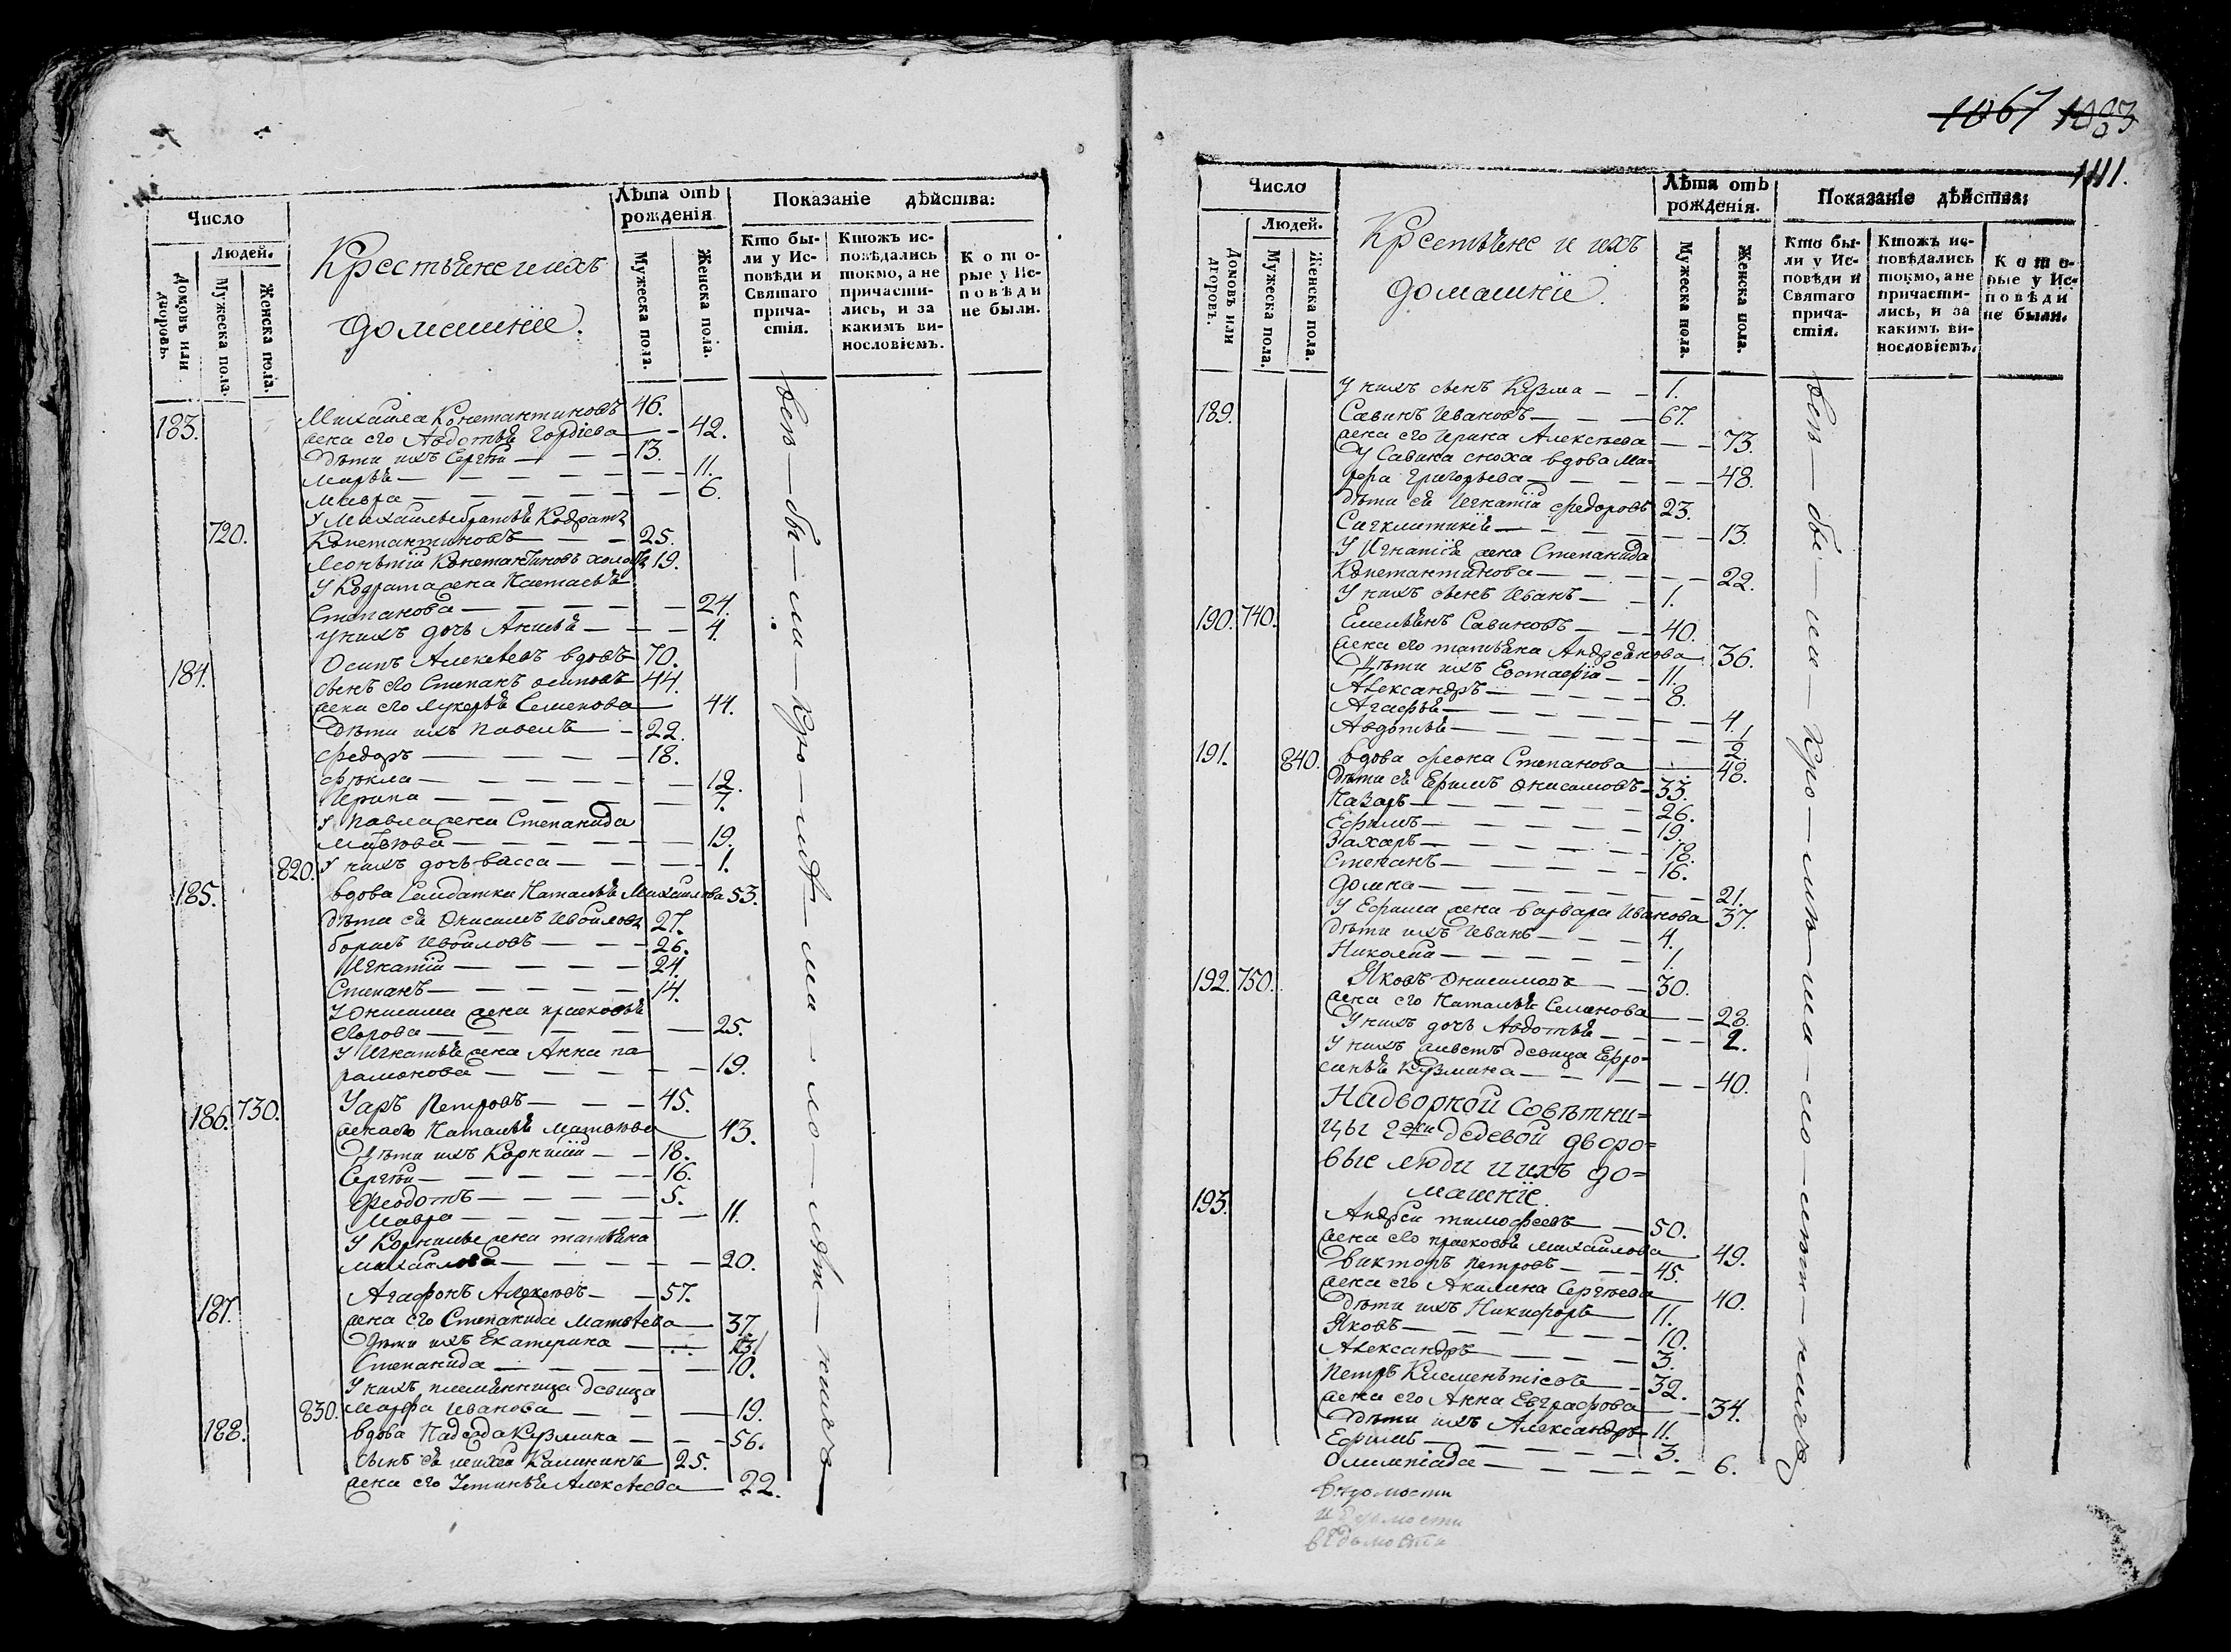 Число
Людей.
Домовъ или дворовъ.
Мужеска пола.
Женска пола.
Крестьяне и ихъ
домашнїе.
Лѣта отъ рожденїя
Мужеска пола.
Женска пола.
Показанїе дѣйства:
Кто были у Исповѣди и Святаго причастїя.
Ктожъ исповѣдались токмо, а не причастились, и за какимъ винословїемъ.
Которые у Исповѣди не были.
183. Михайла Константиновъ 46.
жена его Авдотья Гордіева — 42.
Дѣти ихъ Сергѣй — 13.
Марья — 11.
Мавра — 6.
У Михайлы братья Кодратъ
720. Константиновъ — 25.
Леонътій Константиновъ холостъ 19.
У Кодрата жена Настасья
Степанова — 24.
У нихъ дочь Анисья — 4.
184. Осипъ Алексѣевъ вдовъ 70.
сынъ его Степанъ осиповъ 44.
жена его Лукерья Семенова 44.
Дѣти ихъ Павелъ — 22.
Федоръ — 18.
Фекла — 12.
Ирина — 7.
У Павла жена Степанида
Матвѣева — 19.
820. У нихъ дочь васса — 1.
185. вдова Солдатка Наталья Михайлова 53.
дѣти ея Онисимъ Ивойловъ 27.
борисъ Ивойловъ — 26.
Игнатій — 24.
Степанъ — 14.
У Онисима жена прасковья
Егорова — 25.
У Игнатья жена Анна па
рамонова — 19.
186. 730. Уаръ Петровъ — 45.
жена его Наталья Матвѣева 43.
Дѣти ихъ Корнилій — 18.
Сергѣй — 16.
Феодотъ — 5.
Мавра — 11.
У Корнилья жена татьяна
михайлова — 20.
187. Агафонъ Алексѣевъ — 57.
жена его Степанида Матвѣева — 37.
Дѣти ихъ Екатерина — 13.
Степанида — 10.
У нихъ племянница девица
830. марфа Иванова — 19.
188. вдова Надежда Кузмина — 56.
сынъ ея михей Калининъ 25.
жена его Устинья Алексѣева — 22.
всѣ — бы — ли — Кро — мѣ — ма — ло — лѣт — нихъ
1067 1083
1111.
Число
Людей.
Домовъ или дворовъ.
Мужеска пола.
Женска пола.
Крестьяне и ихъ
домашнїе.
Лѣта отъ рожденїя.
Мужеска пола.
Женска пола.
Показанїе дѣйства:
Кто были у Исповѣди и Святаго причастїя.
Ктожъ исповѣдались токмо, а не причастились, и за какимъ винословїемъ.
Которые у Исповѣди не были.
У нихъ сынъ Кузма — 1.
189. Савинъ Ивановъ — 67.
жена его Ирина Алексѣева — 73.
У Савина сноха вдова Ма=
рфа Григорьева — 48.
дѣти ея Игнатій Федоровъ 23.
Сигклитикія — 13.
У Игнатія жена Степанида
Константинова — 22.
У нихъ сынъ Иванъ — 1.
190. 740. Емельянъ Савиновъ — 40.
жена его татьяна Андреянова 36.
Дѣти ихъ Евстафій — 11.
Александръ — 8.
Агафья — 4.
Авдотья — 1/2.
191. 840. вдова фиона Степанова — 48.
дѣти ея Ефимъ Онисимовъ 33.
Назаръ — 26.
Ефимъ — 19.
Захаръ — 18.
Степанъ — 16.
Домна — 21.
У Ефима жена варвара Иванова 37.
дѣти ихъ Иванъ — 4.
Николай — 1.
192. 750. Яковъ Онисимовъ — 30.
жена его Наталья Семенова — 28.
У нихъ дочь Авдотья — 2.
У нихъ живетъ девица Ефро=
синья Кузмина — 40.
Надворной Совѣтни=
цы Гжи Дедевой дворо=
вые люди и ихъ до=
машніе.
193. Андрей тимофеевъ — 50.
жена его прасковья михайлова 49.
викторъ петровъ — 45.
жена его Акилина Сергѣева 40.
дѣти ихъ Никифоръ 11.
Яковъ — 10.
Александръ — 3.
петръ Клементіевъ — 32.
жена его Анна Евграфова 34.
Дѣти ихъ Александръ 11.
Ефимъ — 3.
Олимпіада — 6.
всѣ — бы — ли — Кро — мѣ — ма — ло — лѣт — нихъ
вѣдомости
ведомости